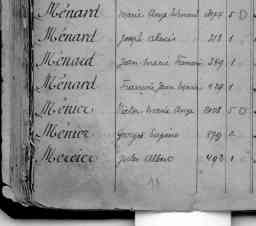 Ménard Marie Ange 5 D
Ménard Joseph Alexis 213 1
Ménard Jean Marie 1
Ménard François Jean Marie 1
Ménier Victor Marie Ange 5 D
Ménier Georges Eugène 579 2
Mercier Jules Albert 492 1